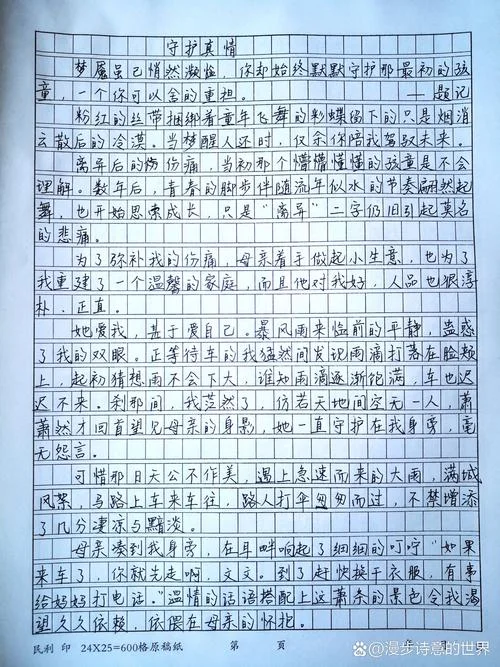 守护真情
梦魇虽已悄然濒临，你却始终默默守护那最初的孩
童，一个你可以舍的重担。
——题记
粉红的丝带捆绑着童年飞舞的粉蝶留下的只是烟消
云散后的冷漠。当梦醒人还时，仅余你陪我驾驭未来。
离异后的伤痛，当初那个懵懵懂懂的孩童是不会
理解。数年后，青春的脚步伴随流年似水的节奏翩然起
舞，也开始思索成长，只是“离异”二字仍旧引起莫名
的悲痛。
为了弥补我的伤痛，母亲着手做起小生意，也为了
我重建了一个温馨的家庭，而且他对我好，人品也很淳
朴、正直。
她爱我，甚于爱自己。暴风雨来临前的平静，蛊惑
了我的双眼。正等待车的我猛然间发识雨滴打落在脸颊
上，起初猜想雨不会下大，谁知雨滴逐渐饱满，车也迟
迟不来。刹那间，我茫然了，仿若天地间空无一人，萧
萧然才回首望见母亲的身影，她一直守护在我身旁，毫
无怨言。
可惜那日天公不作美，遇上急速而来的大雨，满城
风絮，马路上车来车往，路人打伞匆匆而过，不禁增添
了几分凄凉与黯淡。
母亲凑到我身旁，在耳畔响起了细细的叮咛“如果
来车了，你就先走啊，文文。到了赶快换干衣服，有事
给妈妈打电话。”温情的话语搭配上这萧条的景色令我渴
望久久依赖，依偎在母亲的怀抱。
民利 印 24X25=600格原稿纸 第 页 年 月
@漫步诗意的世界